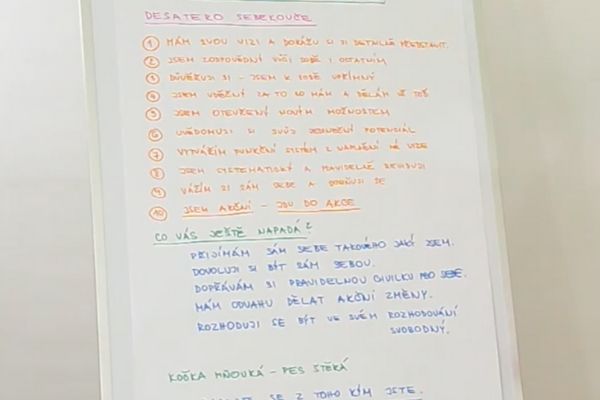 DESATERO SEBEKOUČE
1 MÁM SVOU VIZI A DOKÁŽU SI JI DETAILNĚ PŘEDSTAVIT.
2 JSEM ZODPOVĚDNÝ VŮČI SOBĚ I OSTATNÍM
3 DŮVĚŘUJI SI – JSEM K SOBĚ UPŘÍMNÝ
4 JSEM VDĚČNÝ ZA TO CO MÁM A DĚLÁM
5 JSEM OTEVŘENÝ NOVÝM MOŽNOSTEM
6 UVĚDOMUJI SI SVŮJ JEDINEČNÝ POTENCIÁL
7 VYTVÁŘÍM FUNKČNÍ SYSTÉM Z NAPLNĚNÍ MÉ VIZE
8 JSEM SYSTEMATICKÝ A PRAVIDELNĚ REVIDUJI
9 VÁŽÍM SI SÁM SEBE A ODMĚŇUJI SE
10 JSEM AKČNÍ – JDU DO AKCE
CO VÁS JEŠTĚ NAPADÁ?
PŘIJÍMÁM SÁM SEBE TAKOVÉHO JAKÝ JSEM.
DOVOLUJI SI BÝT SÁM SEBOU.
DOPŘÁVÁM SI PRAVIDELNOU CIVILKU PRO SEBE.
MÁM ODVAHU DĚLAT AKČNÍ ZMĚNY.
ROZHODUJI SE BÝT VE SVÉM ROZHODOVÁNÍ
SVOBODNÝ.
KOČKA MŇOUKÁ – PES ŠTĚKÁ
SE Z TOHO KÝM JSTE.